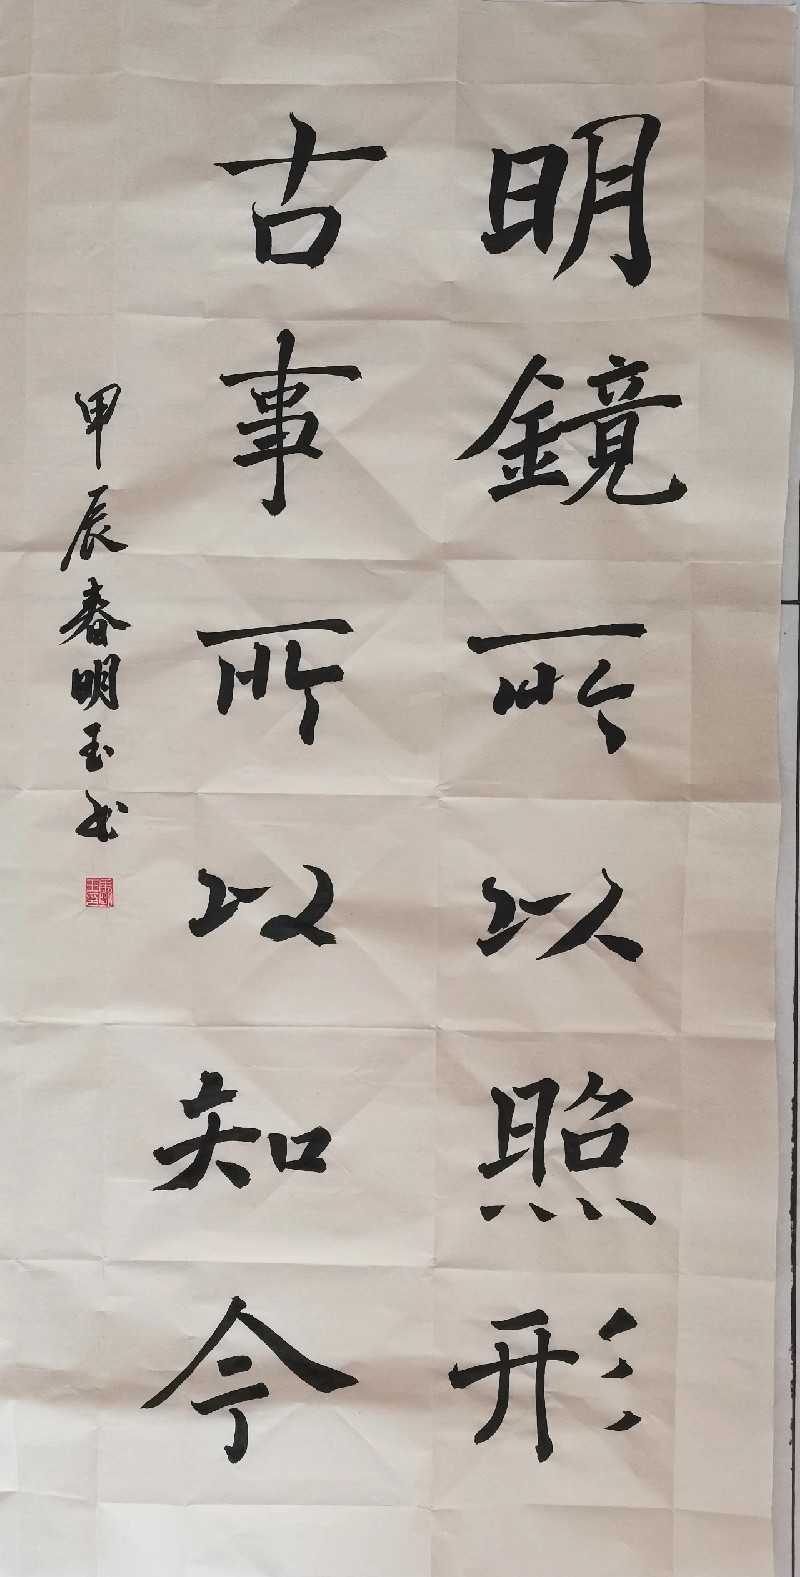 明鏡所以照形
古事所以知今
甲辰春明玉书